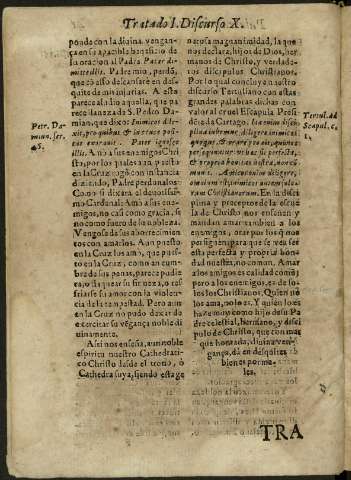 Tratado I. Discurso X.
pondo con la diuina, vengan-
ça en su apacible banquete de
su oracion al Padre Pater di-
mitte illis. Padre mio, perdõ,
que cõ asso descansaré en des-
quite de mis injurias. A esta
parece aludio aquella, que pa-
rece llaneza de S. Pedro Da-
mian, que dixo: Inimicos dile-
xit, pro quibus & in cruce posi-
tus exorauit. Pater ignosce
illis. Amó a sus enemigos Chri-
sto, por los quales aun puesto
en la Cruz rogó con instancia
diziendo, Padre perdonalos:
Como si dixera al deuotissi-
mo Cardenal: Amó a sus ene-
migos, no casi como gracia, si
no como fuero de la nobleza.
Vengose de sus aborrecimien
tos con amarlos. Aun puesto
en la Cruz los amó, que pues-
to en la Cruz, como en cum-
bre de sus penas, parece pudie
ra, ò flaquear su firmeza, o res-
friarse su amor con la violen-
cia de la tempestad. Pero aun
en la Cruz no pudo dexar de
exercitar su vẽgança noble di
uinamente.
Assi nos enseña, aun noble
espiritu nuestro Cathedrati-
co Christo desde el trono, ò
Cathedra suya, siendo esta ge
Petr. Da-
mian. ser.
45.
nerosa magnanimidad, la que
nos declara, hijos de Dios, her
manos de Christo, y verdade-
ros discipulos Christianos.
Por lo qual concluye nuestro
discurso Tertuliano con estas
grandes palabras dichas con
valor al cruel Escapula Presi-
dente de Cartago: Ita enim disci-
plina iubemur, diligere inimicos
quoque, & orare pro eis, qui nos
persequuntur: vt hæc sit perfecta,
& propria bonitas nostra, non com-
munis. Amicos enim diligere,
omnium est, inimicos autem solo-
rum Christianorum. En la disci
plina y preceptos de la escue
la de Christo nos enseñen y
mandan amar tambien a los
enemigos, orar por los q̃ nos
persiguen, para que se vea ser
esta perfecta y propria bon-
dad nuestra, no comun. Amar
a los amigos es calidad comũ;
pero a los enemigos, es de so-
los los Christianos. Quien nó
los ama, no lo es. Y quien lo es
haze muy como hijo de su Pa
dre celestial, hermano, y disci
pulo de Christo, que con mas
que honrada, diuina ven-
gança, dá en desquites
bienes por ma-
les.
Tertul. ad
Scapul. c.
1.
TRA